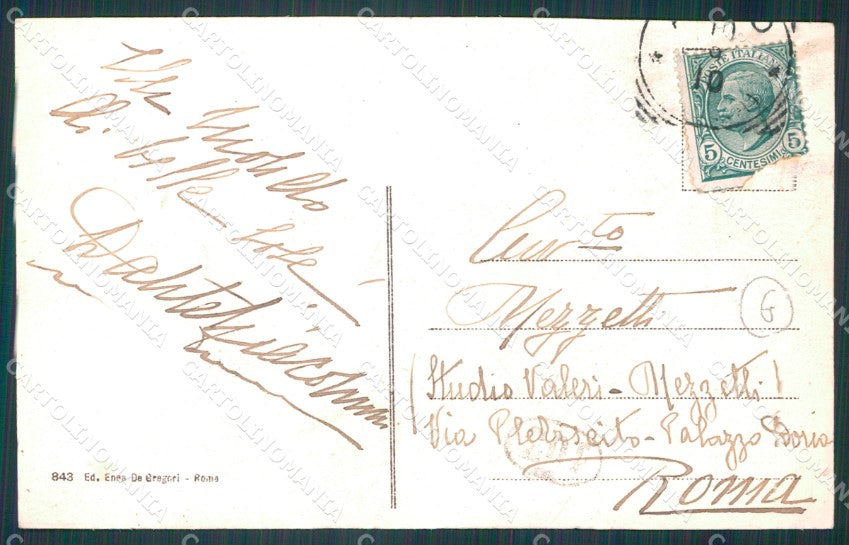 Un modello
di belle cose
Dante Giacomini
843 Ed. Enea De Gregori - Roma
10
9
10
POSTE ITALIANE
5 CENTESIMI 5
Mezzetti
G
(Studio Valeri - Mezzetti)
Via Plebiscito - Palazzo Doria
Roma
CARTOLINOMANIA